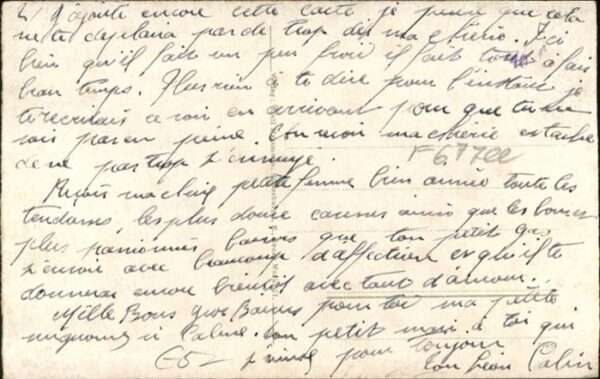 J'ajoute encore cette carte je pense que cela
ne te deplaira pas de trop dis ma cherie. Ici
bien qu'il fait un peu froid il fait tout à fait
beau temps. Plus rien à te dire pour l'instant je
t'ecrirais ce soir en arrivant pour que tu ne
sois pas en peine. ma cherie et tache
de ne pas trop t'ennuyé.
F 6,77 CC
Reçois ma chère petite femme bien aimée toute les
tendresses, les plus douce caresses ainsi que les bonnes
plus passionnés baisers que ton petit gas
t'envoie avec beaucoup d'affection et qu'il te
donneras encore bientôt avec tout d'amour.
Mille Bons gros Baisers pour toi ma petite
mignonne Ton petit mari à toi qui
t'aime pour toujours
ton Calin